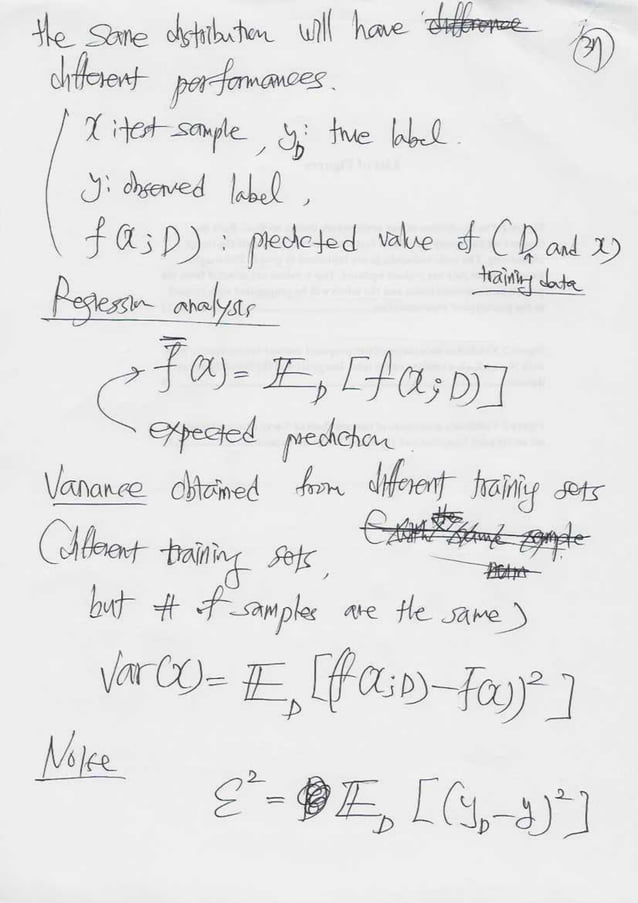 the same distribution will have ~~difference~~ 37
different performances.
x : test sample, y_D : true label.
y : observed label,
f(x;D) : predicted value of (D and x)
training data
Regression analysis
f̄(x) = 𝔼_D [f(x;D)]
expected prediction
Variance obtained from different training sets
(different training sets,
but # of samples are the same)
Var(x) = 𝔼_D [(f(x;D) - f̄(x))²]
Noise
ε² = 𝔼_D [(y_D - y)²]